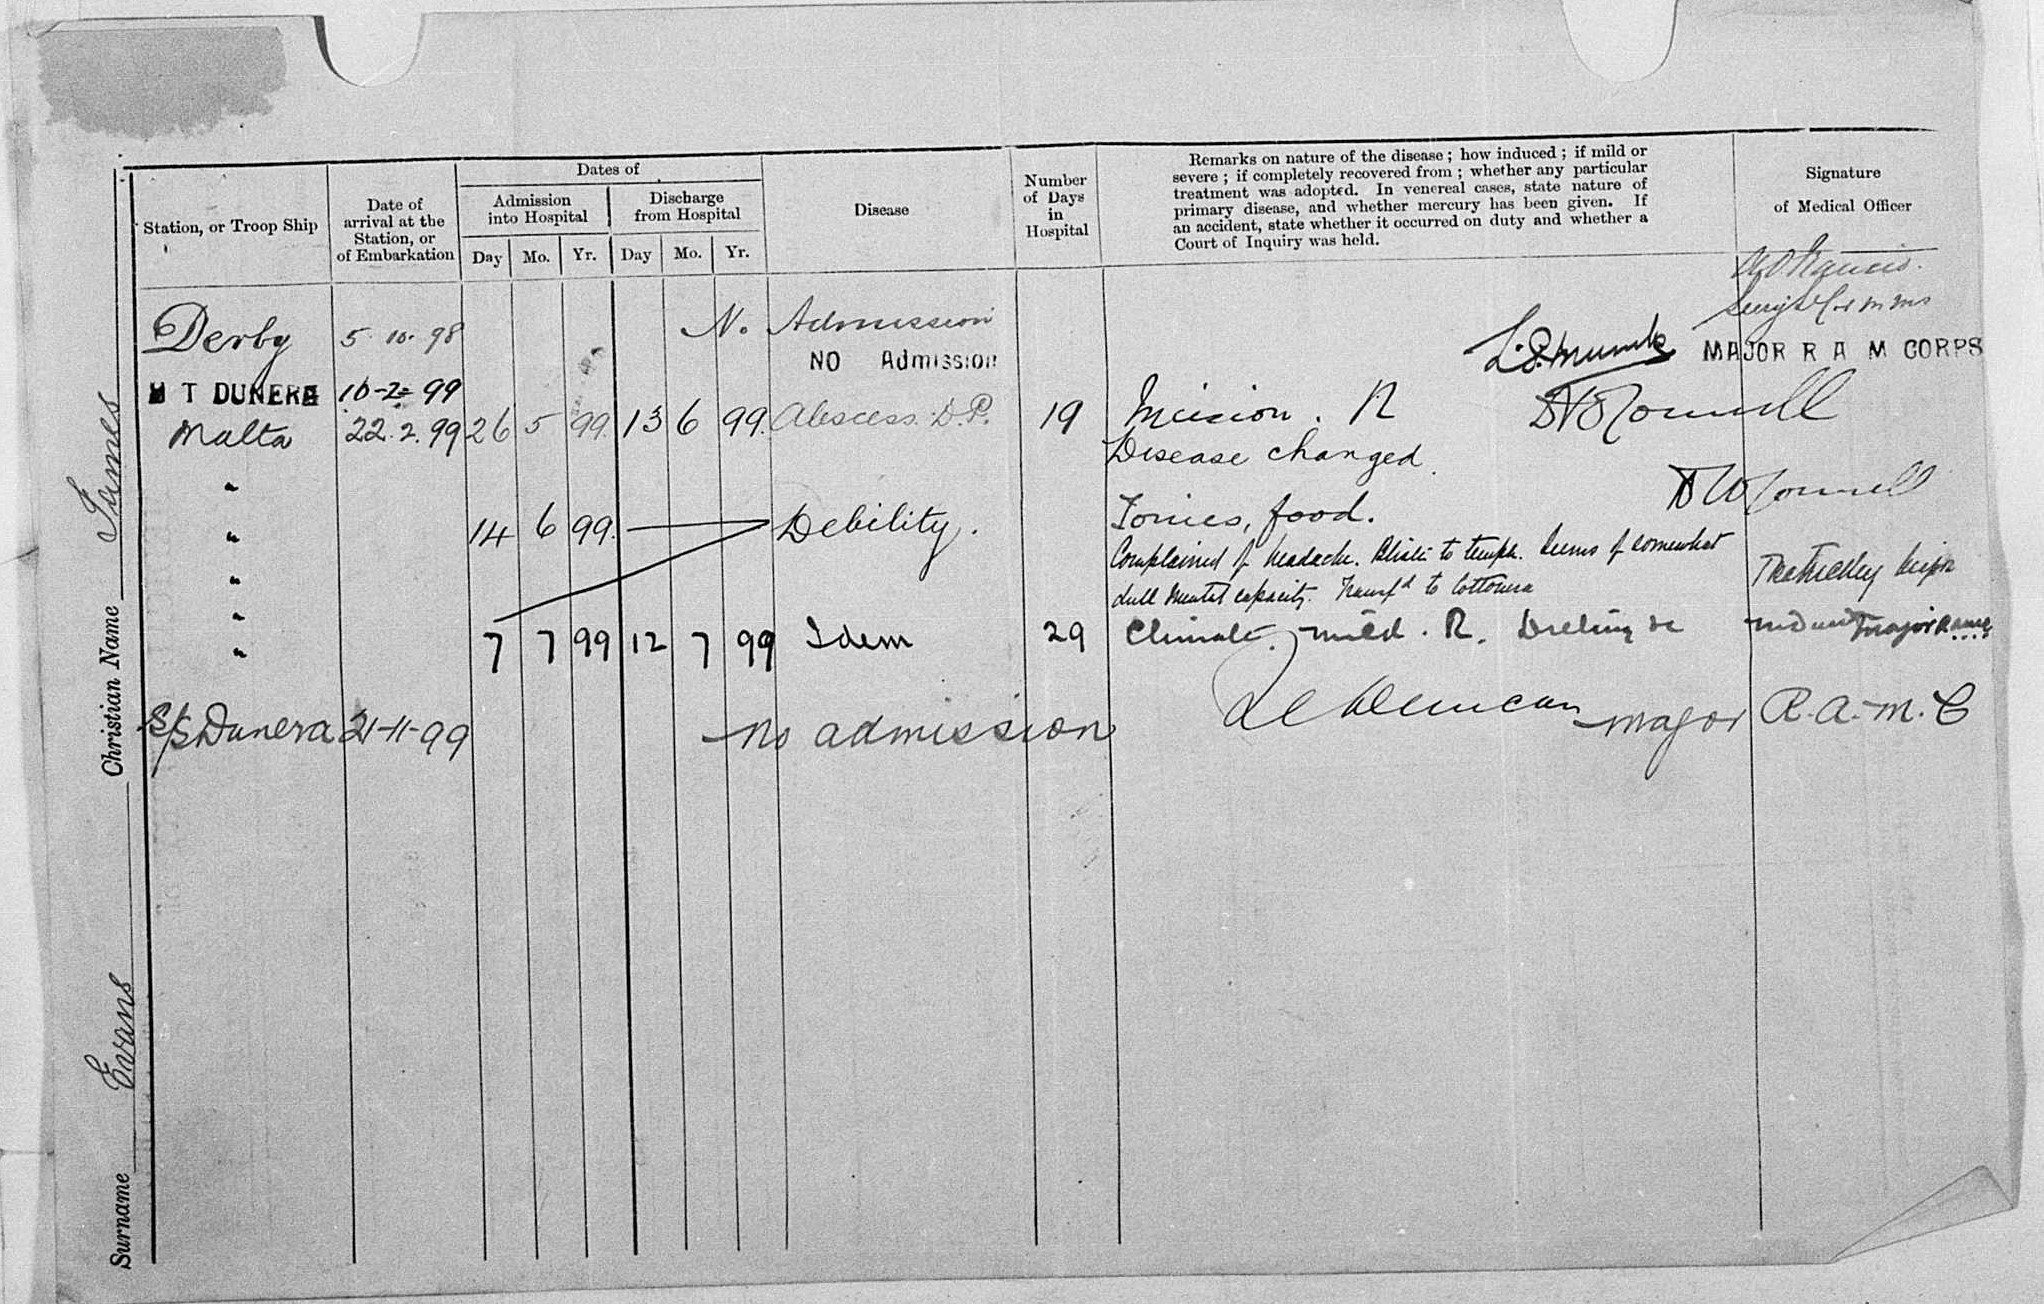 Surname Evans Christian Name James
Station, or Troop Ship
Date of
arrival at the
Station, or
of Embarkation
Dates of
Admission
into Hospital
Discharge
from Hospital
Day Mo. Yr. Day Mo. Yr.
Disease
Number
of Days
in
Hospital
Remarks on nature of the disease; how induced; if mild or
severe; if completely recovered from; whether any particular
treatment was adopted. In venereal cases, state nature of
primary disease, and whether mercury has been given. If
an accident, state whether it occurred on duty and whether a
Court of Inquiry was held.
Signature
of Medical Officer
Derby 5 10. 98 No Admission
NO Admission MAJOR R A M CORPS
T DUNERA 10-2-99
Malta 22.2.99 26 5 99 13 6 99 Abscess. D.P. 19 Incision. R
Disease changed.
"
" 14 6 99 Debility. Tonics, food.
Complained of headache. to temple. Seems of somewhat
" dull mental capacity. Transfd to Cottonera
"
" 7 7 99 12 7 99 Idem 29 Climate. mild. R. Dieting &c Major
S/S Dunera 21-11-99 no admission Duncan Major R.A.M.C